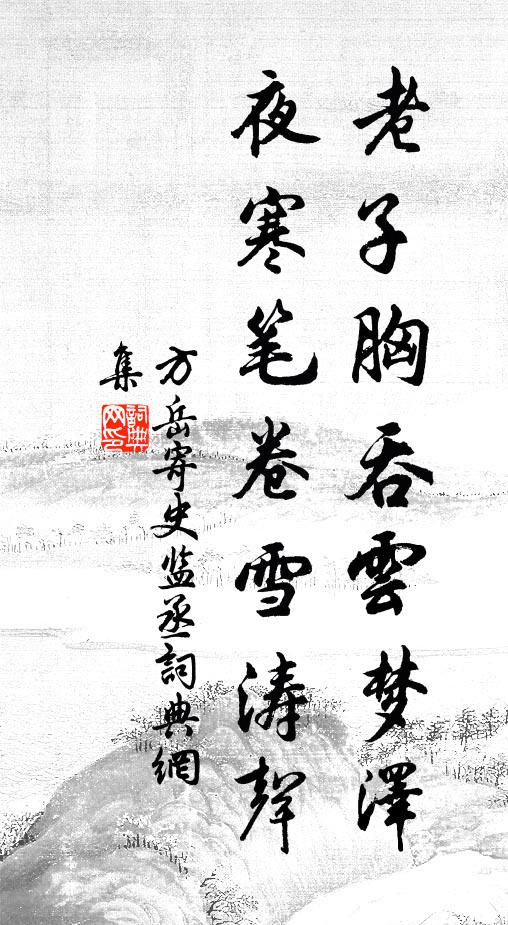 老子胸吞雲梦澤
夜寒笔卷雪涛聲
方岳寄史监丞詞典網
集
詞典网印